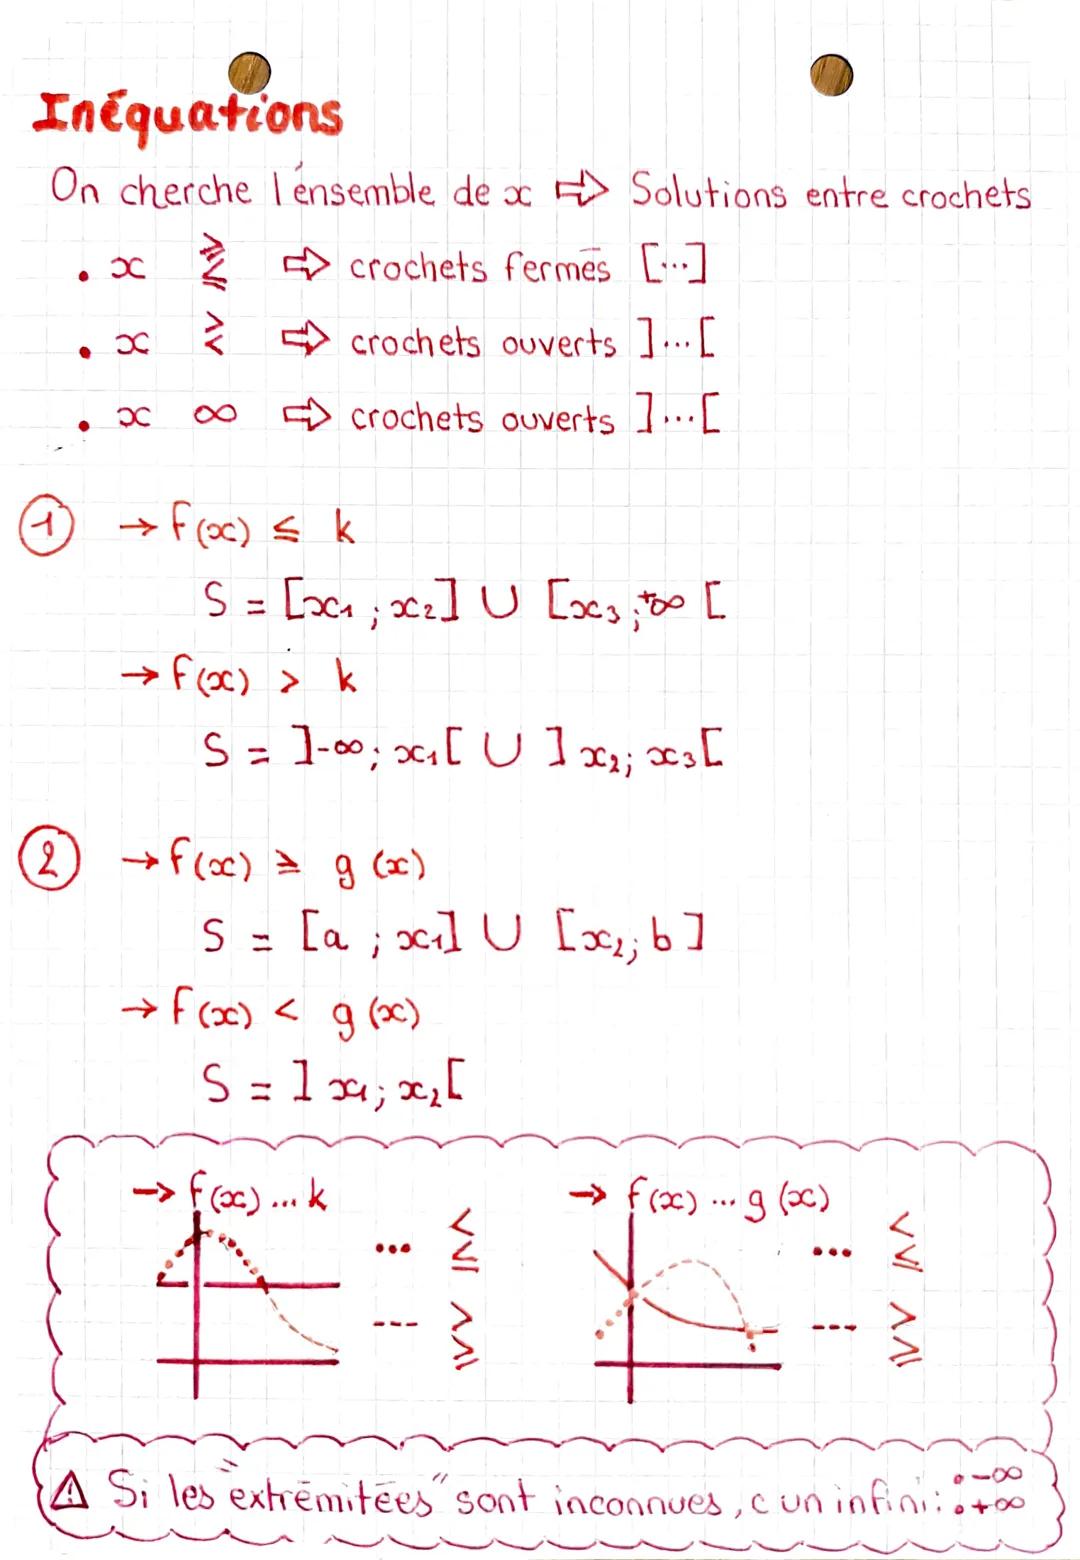 Inéquations
On cherche l'énsemble de x ⇨ Solutions entre crochets
• x ⩾⩽ ⇨ crochets fermés [...]
• x >< ⇨ crochets ouverts ]...[
• x ∞ ⇨ crochets ouverts ]...[
① → f(x) ≤ k
S = [x₁ ; x₂] U [x₃ ; +∞ [
→ f(x) > k
S = ]-∞ ; x₁[ U ] x₂ ; x₃[
② → f(x) ≥ g (x)
S = [a ; x₁] U [x₂ ; b]
→ f(x) < g (x)
S = ] x₁ ; x₂[
→ f(x) ... k
... < ≤
--- > ≥
→ f(x) ... g (x)
... < ≤
--- > ≥
⚠ Si les "extrémitées" sont inconnues, c un infini : • -∞ • +∞